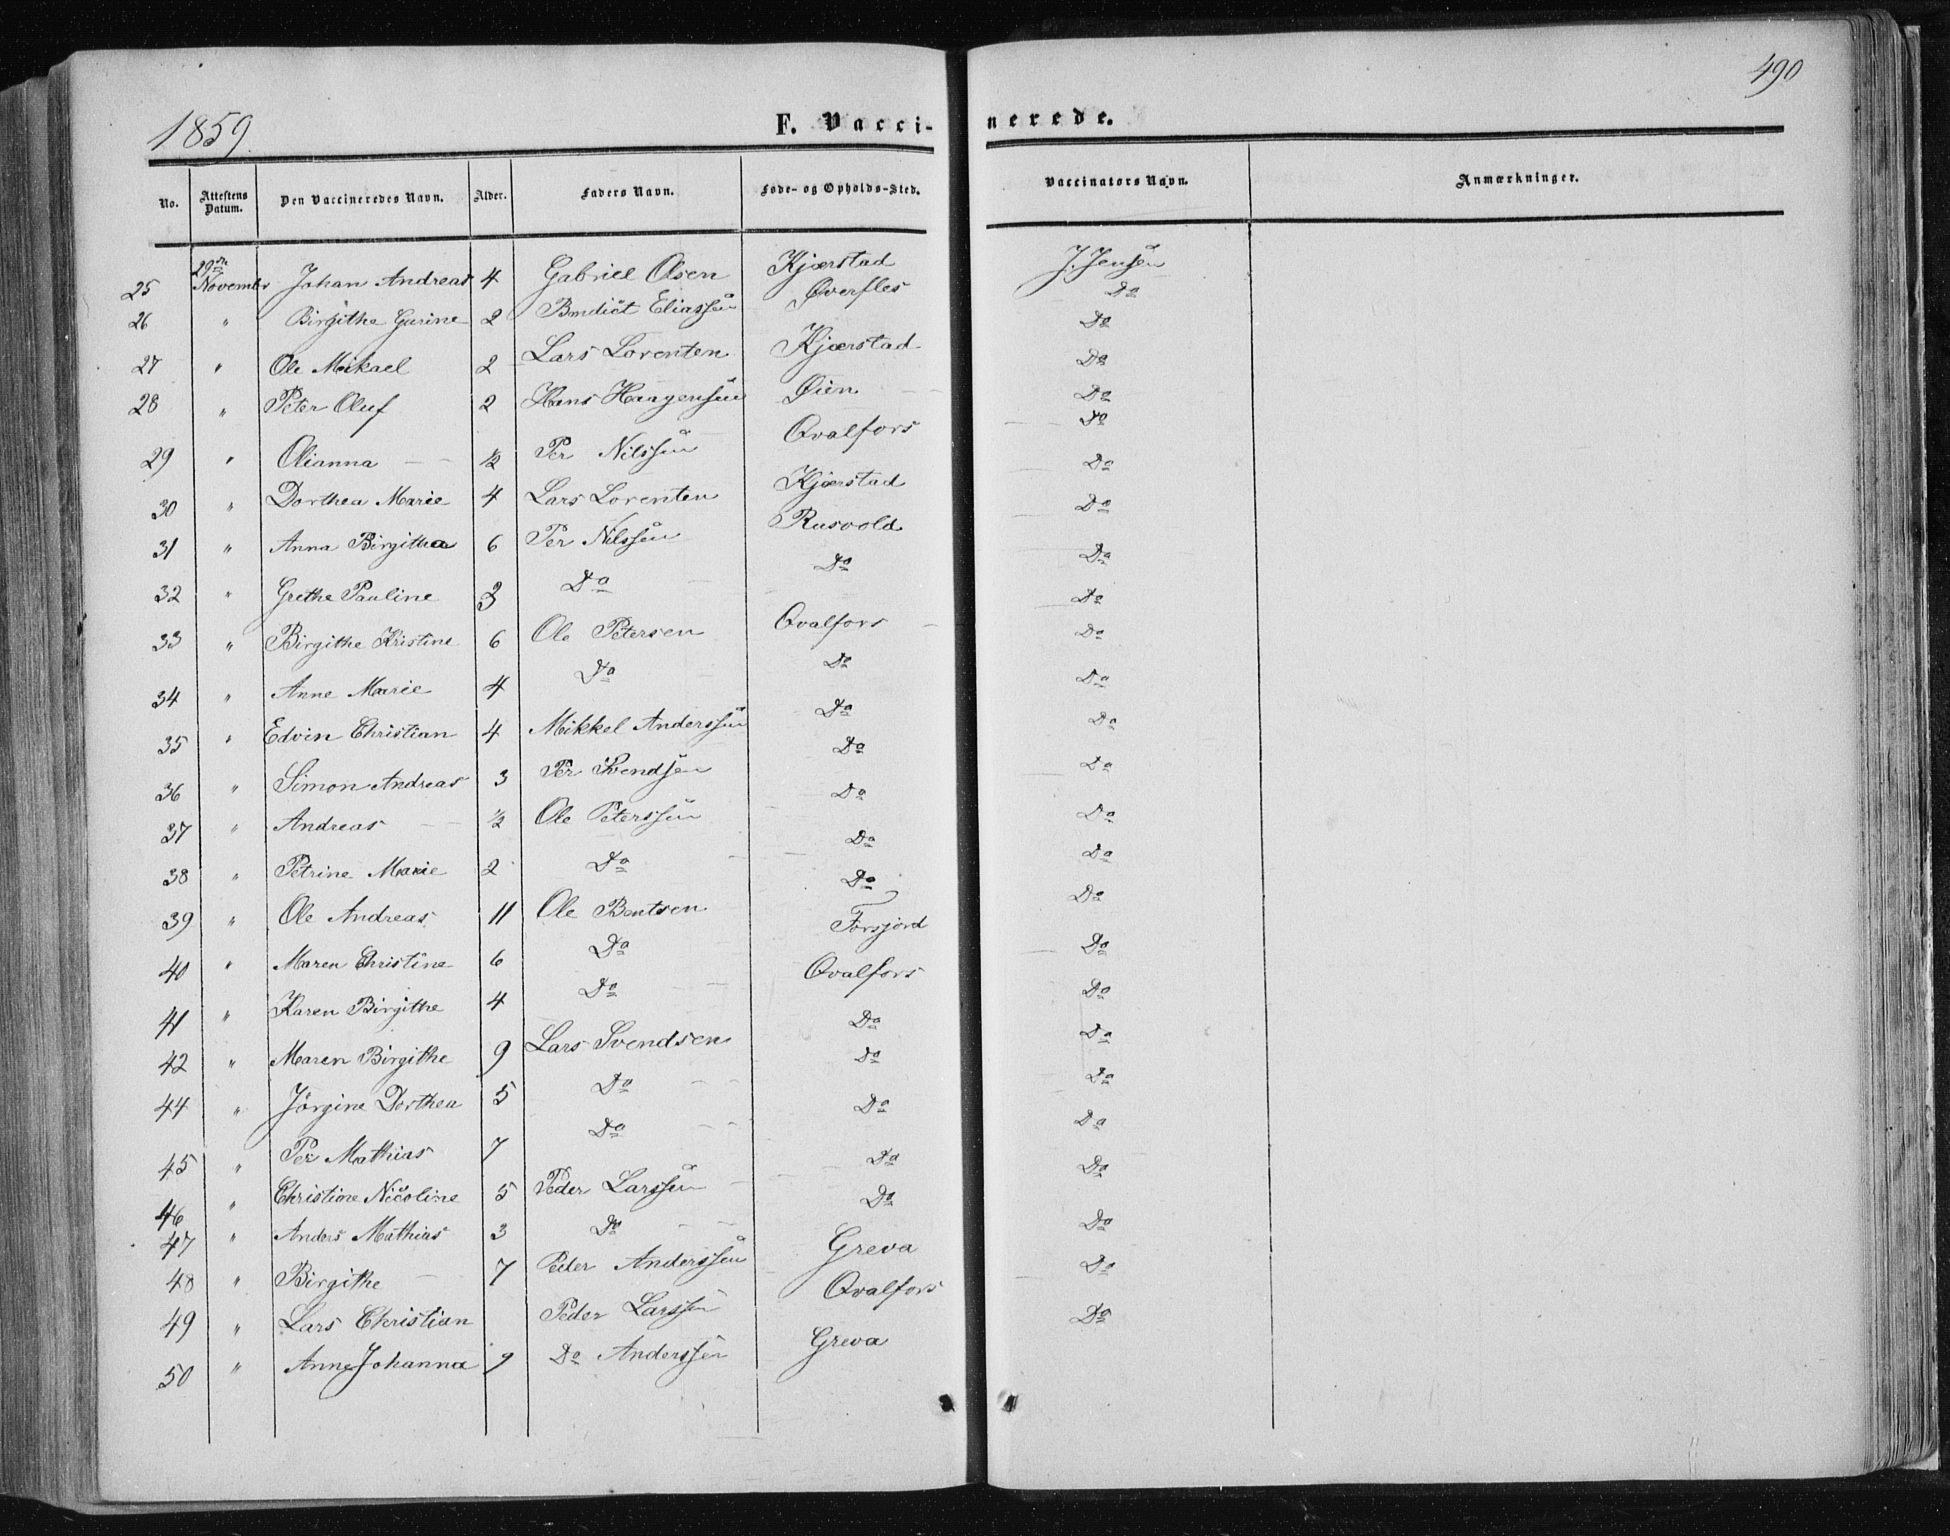 490
1859.
F. Vaccinerede.
No. | Attestens Datum. | Den Vaccineredes Navn. | Alder. | Faders Navn. | Føde- og Opholds-Sted. | Vaccinators Navn. | Anmærkninger.
25 | 29de Novembr | Johan Andreas | 4 | Gabriel Olsen | Kjærstad | J. Jensen
26 | " | Birgithe Garine | 2 | Bendict Eliassen | Øverfles | Do
27 | " | Ole Mikael | 2 | Lars Lorenten | Kjærstad | Do
28 | " | Peter Oluf | 2 | Hans Haagensen | Øien | Do
29 | " | Olianna | 1/2 | Per Nilssen | Qvalfors | Do
30 | " | Dorthea Marie | 4 | Lars Lorenten | Kjærstad | Do
31 | " | Anna Birgitha | 6 | Per Nilssen | Rusvold | Do
32 | " | Grethe Pauline | 3 | Do | Do | Do
33 | " | Birgithe Kristine | 6 | Ole Petersen | Qvalfors | Do
34 | " | Anne Marie | 4 | Do | Do | Do
35 | " | Edvin Christian | 4 | Mikkel Anderssen | Do | Do
36 | " | Simon Andreas | 3 | Per Svendsen | Do | Do
37 | " | Andreas | 1/2 | Ole Peterssen | Do | Do
38 | " | Petrine Marie | 2 | Do | Do | Do
39 | " | Ole Andreas | 11 | Ole Bentsen | Do | Do
40 | " | Maren Christine | 6 | Do | Forsjord | Do
41 | " | Karen Birgithe | 4 | Do | Qvalfors | Do
42 | " | Maren Birgithe | 9 | Lars Svendsen | Do | Do
44 | " | Jörgine Dorthea | 5 | Do | Do | Do
45 | " | Per Mathias | 7 | Do | Do | Do
46 | " | Christine Nicoline | 5 | Peder Larssen | Do | Do
47 | " | Anders Mathias | 3 | Do | Do | Do
48 | " | Birgithe | 7 | Peder Anderssen | Greva | Do
49 | " | Lars Christian | Peder Larssen | Qvalfors | Do
50 | " | Anne Johanna | 9 | Do Anderssen | Greva | Do